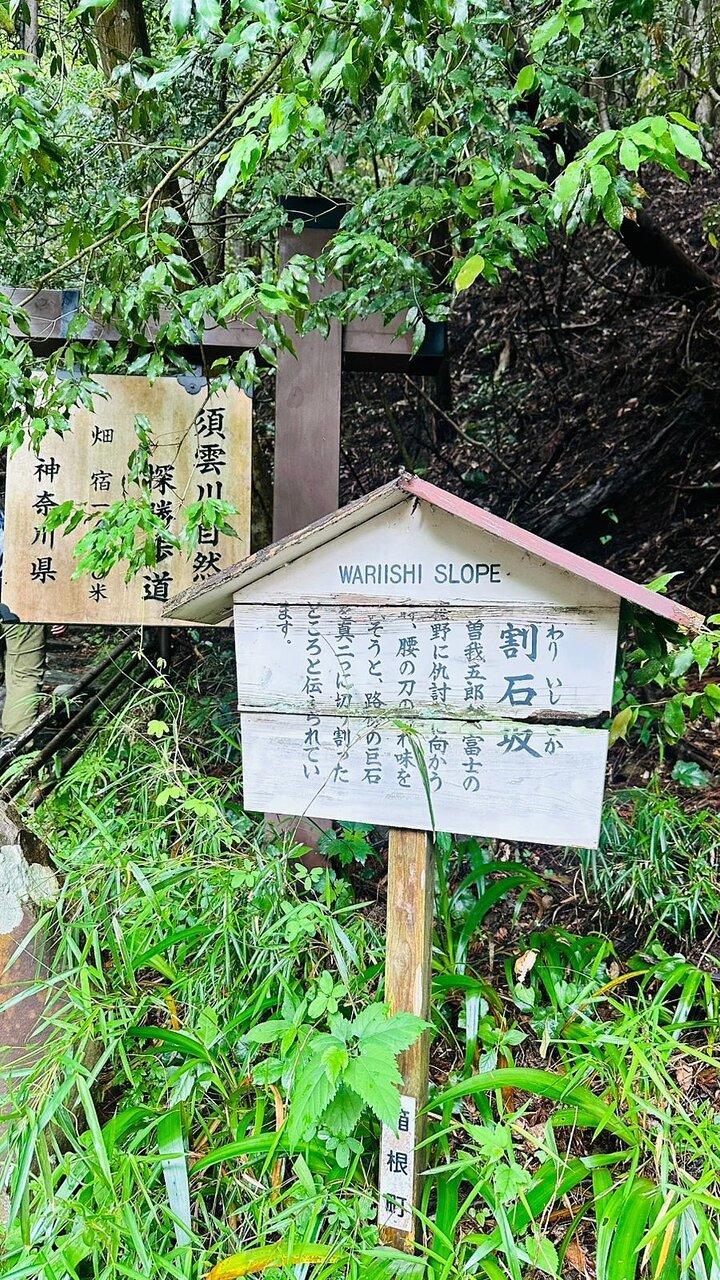 WARIISHI SLOPE
わりいし か
割石坂
曽我五郎 富士の
野に仇討 に向かう
腰の刀の れ味を
そうと、路 の巨石
真二つに切り割った
ところと伝えられてい
ます。
須雲川自然
探勝歩道
畑宿一 米
神奈川県
箱根町